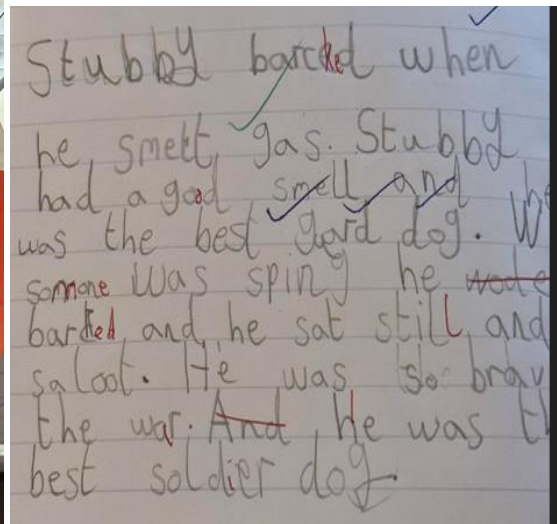 Stubby barcked when
he smelt gas. Stubby
had a good smell and
was the best gard dog. Wh
somone was sping he wode
barked and he sat still and
saloot. He was so brav
the war. And He was th
best soldier dog.